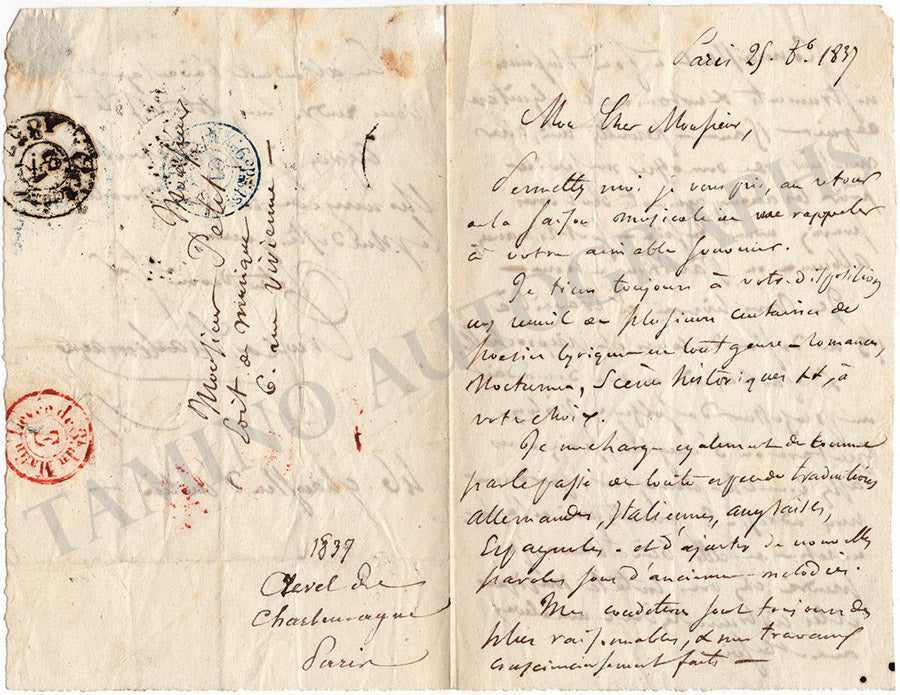 Paris 25. 8bre 1837
Mon Cher Monsieur,
Permettez moi, je vous prie, au retour
de la saison musicale de me rappeler
à votre aimable souvenir.
Je tiens toujours à votre disposition
un recueil de plusieurs centaines de
poésies lyriques en tout genre – romances,
Nocturnes, Scènes historiques &&, à
votre choix.
Je me charge également comme
par le passé de toute espèce de traductions
allemandes, Italiennes, anglaises,
Espagnoles – et d'ajuster de nouvelles
paroles sous d'anciennes mélodies.
Mes conditions sont toujours des
plus raisonnables, & mes travaux
consciencieusement faits –
Monsieur
Monsieur Petit
Edit de musique
6. rue Vivienne –
1837
Crevel de
Charlemagne
Paris
Levée de
du Matin
TAMINO AUTOGRAPHS